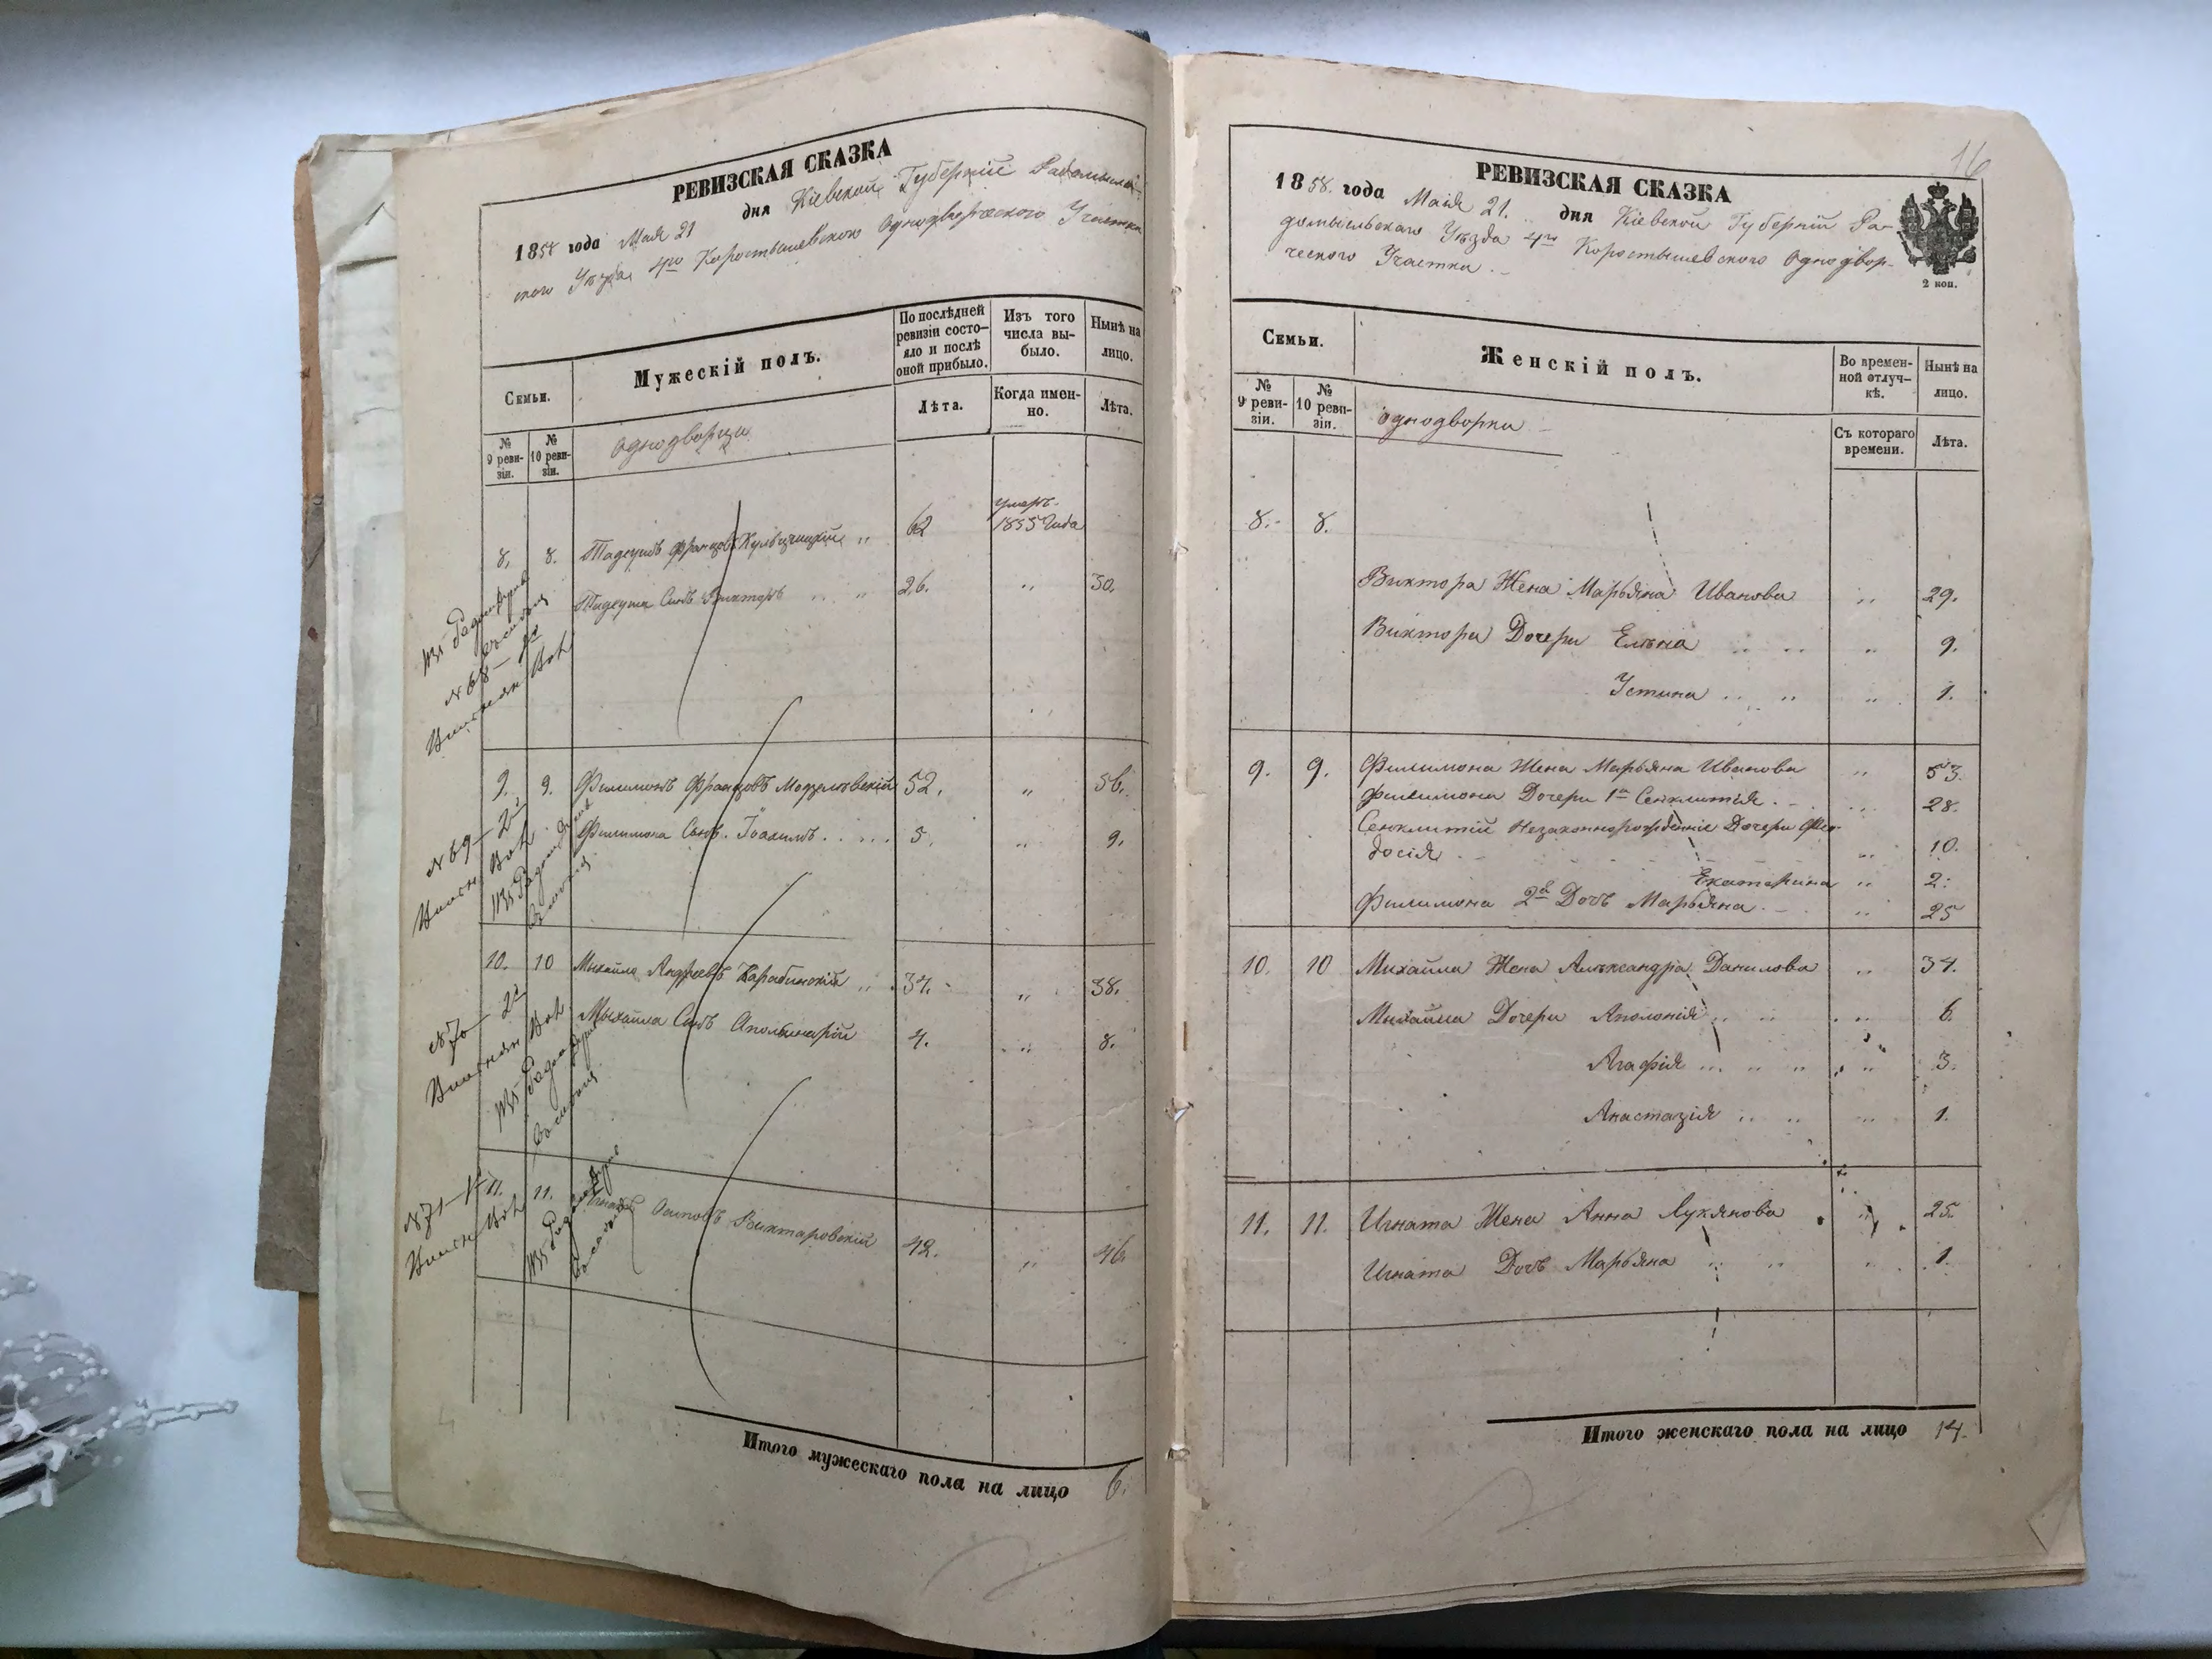 РЕВИЗСКАЯ СКАЗКА
1858 года Мая 21 дня Кіевской Губерніи Радомысль-
ского Уѣзда 4го Коростышевского Однодворческого Участка
Семьи.
№ 9 реви-зіи.
№ 10 реви-зіи.
Мужескій полъ.
По послѣдней ревизіи состо-яло и послѣ оной прибыло.
Изъ того числа вы-было.
Нынѣ на лицо.
Лѣта.
Когда имен-но.
Лѣта.
Однодворци
8. 8. Тадеушъ Францовъ 62 умеръ 1855 Года
Тадеуша Сынъ Викторъ 26. " 30.
№ 68
9. 9. Филимонъ Францовъ 52. " 56.
Филимона Сынъ Іоахимъ 5. " 9.
№ 69
10. 10 Михайло Андреевъ Карабинскій 34. " 38.
Михайла Сынъ Аполинарій 4. " 8.
№ 70
11. 11. Осиповъ Викторовскій 42. " 46.
№ 71
Итого мужескаго пола на лицо 6.
16
РЕВИЗСКАЯ СКАЗКА
1858. года Маія 21. дня Кіевской Губерніи Ра-
домысльскаго Уѣзда 4го Коростышевского Однодвор-
ческого Участка.
2 коп.
Семьи.
№ 9 реви-зіи.
№ 10 реви-зіи.
Женскій полъ.
Во времен-ной отлуч-кѣ.
Нынѣ на лицо.
Съ котораго времени.
Лѣта.
Однодворки
8. 8.
Виктора Жена Марьяна Иванова " 29.
Виктора Дочери Елена " 9.
Устина " 1.
9. 9. Филимона Жена Марьяна Иванова " 53.
Филимона Дочери 1я Сенклитія " 28.
Сенклитіи Незаконнорожденніе Дочери Фео-
досія " 10.
Екатерина " 2.
Филимона 2я Дочь Марьяна " 25
10. 10 Михайла Жена Александра Данилова " 34.
Михайла Дочери Аполонія " 6.
Агафія " 3.
Анастазія " 1.
11. 11. Игната Жена Анна Лукянова " 25.
Игната Дочь Марьяна " 1.
Итого женскаго пола на лицо 14.